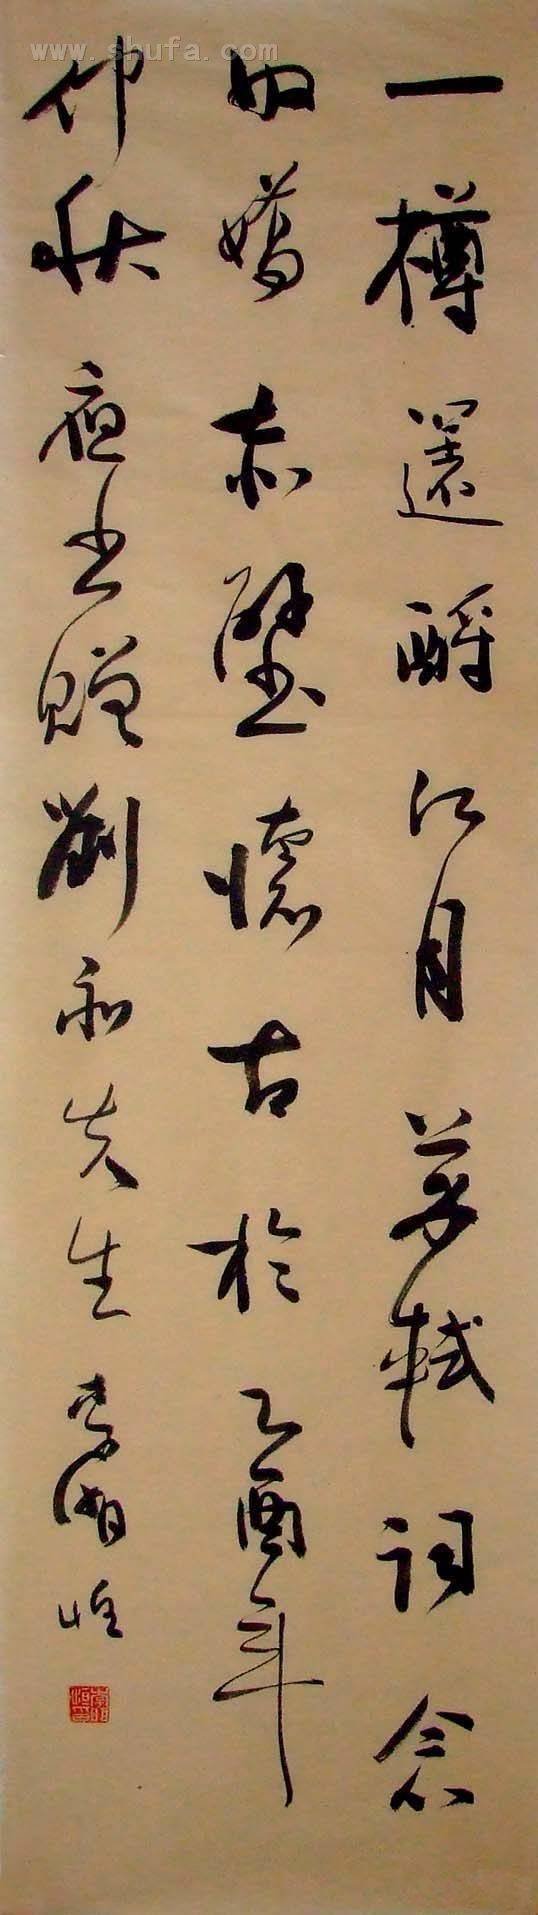 一樽還酹江月苏軾詞念
奴嬌赤壁懷古於乙酉年
仲秋夜书贈劉和先生李明
www.shufa.com